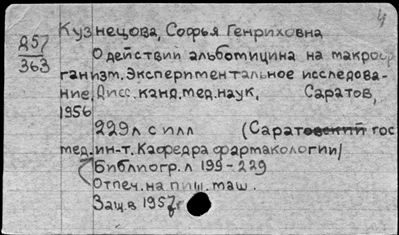 Кузнецова, Софья Генриховна
257
363
О действии альботицина на макроор
ганизм. Экспериментальное исследова-
ние. Дисс. канд. мед. наук, Саратов,
1956
229л с илл (Саратовский гос
мед. ин-т. Кафедра фармакологии/
Библиогр. л 199-229
Отпеч. на пиш. маш.
Защ. в 1957г